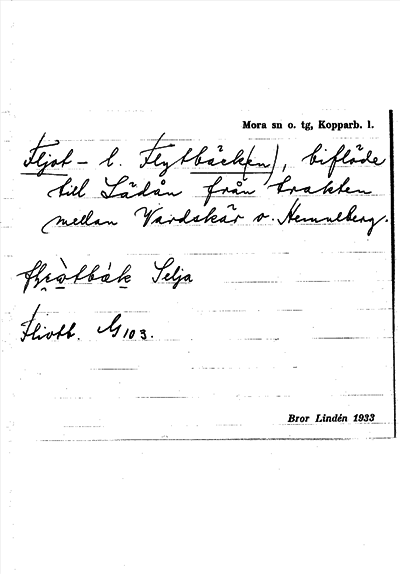 Mora sn o. tg, Kopparb. l.
Fljot- l. Flytbäck(en), biflöde
till Lädån från trakten
mellan Vardskär o. Hemulberg.
Selja
Fliotb. G103.
Bror Lindén 1933